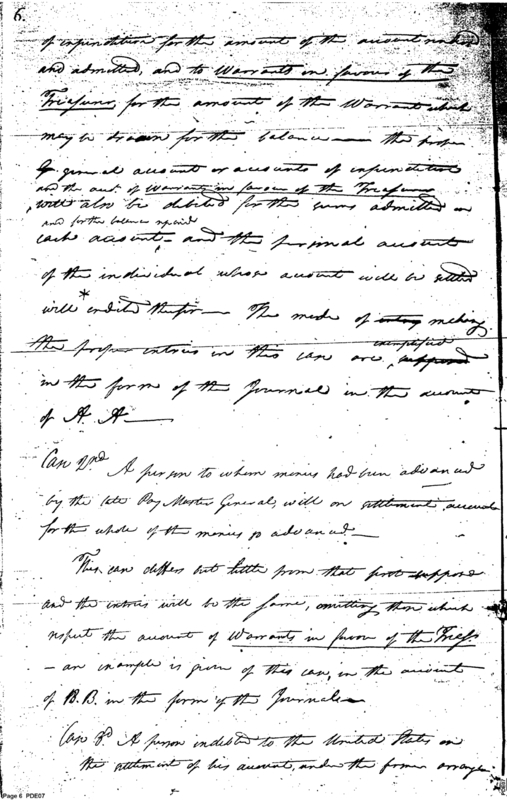 6.
of expenditure for the amount of the account
and admitted, and to Warrants in favour of the
Treasurer for the amount of the Warrant which
may be drawn for the balance — the proper
general account or accounts of expenditure
and the of Warrants in favour of the Treasurer
will also be debited for the sums admitted on
and for the balance
each account — and the personal account
of the individual whose account will be settled
will * credited therefor — The mode of entry making
exemplified
the proper entries in this case are, supposed
in the form of the Journal in the account
of A. A —
Case 2nd A person to whom monies had been advanced
by the late Pay Master General, will on settlement, account
for the whole of the monies so advanced. —
This case differs but little from that first supposed
and the entries will be the same, omitting those which
respect the account of Warrants in favour of the Treasr
— an example is given of this case, in the account
of B. B. in the form of the Journal —
Case 3d A person indebted to the United States on
the settlement of his account, under the former arrange
Page 6 PDE07